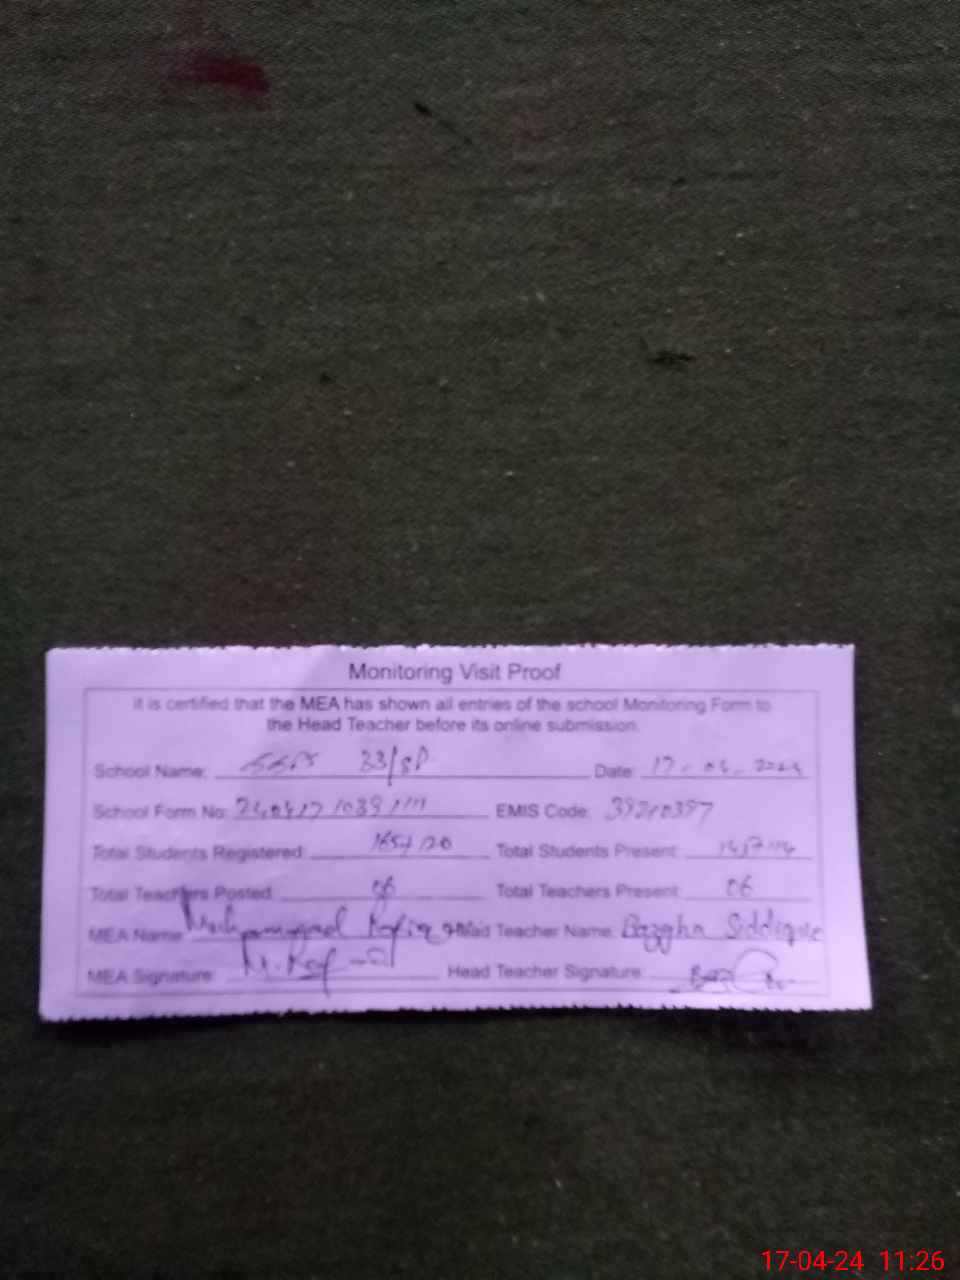 Monitoring Visit Proof
it is certified that the MEA has shown all entries of the school Monitoring Form to
the Head Teacher before its online submission.
School Name: 33/SP Date: 17-04-2024
School Form No: EMIS Code:
Total Students Registered: Total Students Present:
Total Teachers Posted: 06 Total Teachers Present: 06
MEA Name: Muhammad Rafiq Head Teacher Name: Bazgha Siddique
MEA Signature: Head Teacher Signature:
17-04-24 11:26